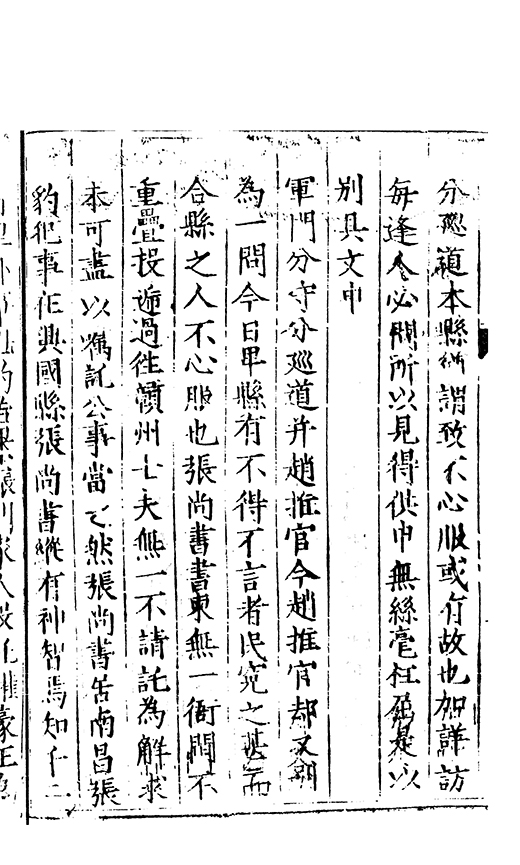 分廵道本縣所謂致不心服或有故也加詳訪
每逢人必問所以見得供中無絲毫枉屈是以
別具文申
軍門分守分廵道并趙推官今趙推官却又朝
為一問今日卑縣有不得不言者民冤之甚而
合縣之人不心服也張尚書書柬無一衙門不
重疊投逓過徃贛州士夫無一不請託為解求
本可盡以囑託公事當之然張尚書居南昌張
豹犯事在興國縣張尚書縱有神智焉知千二